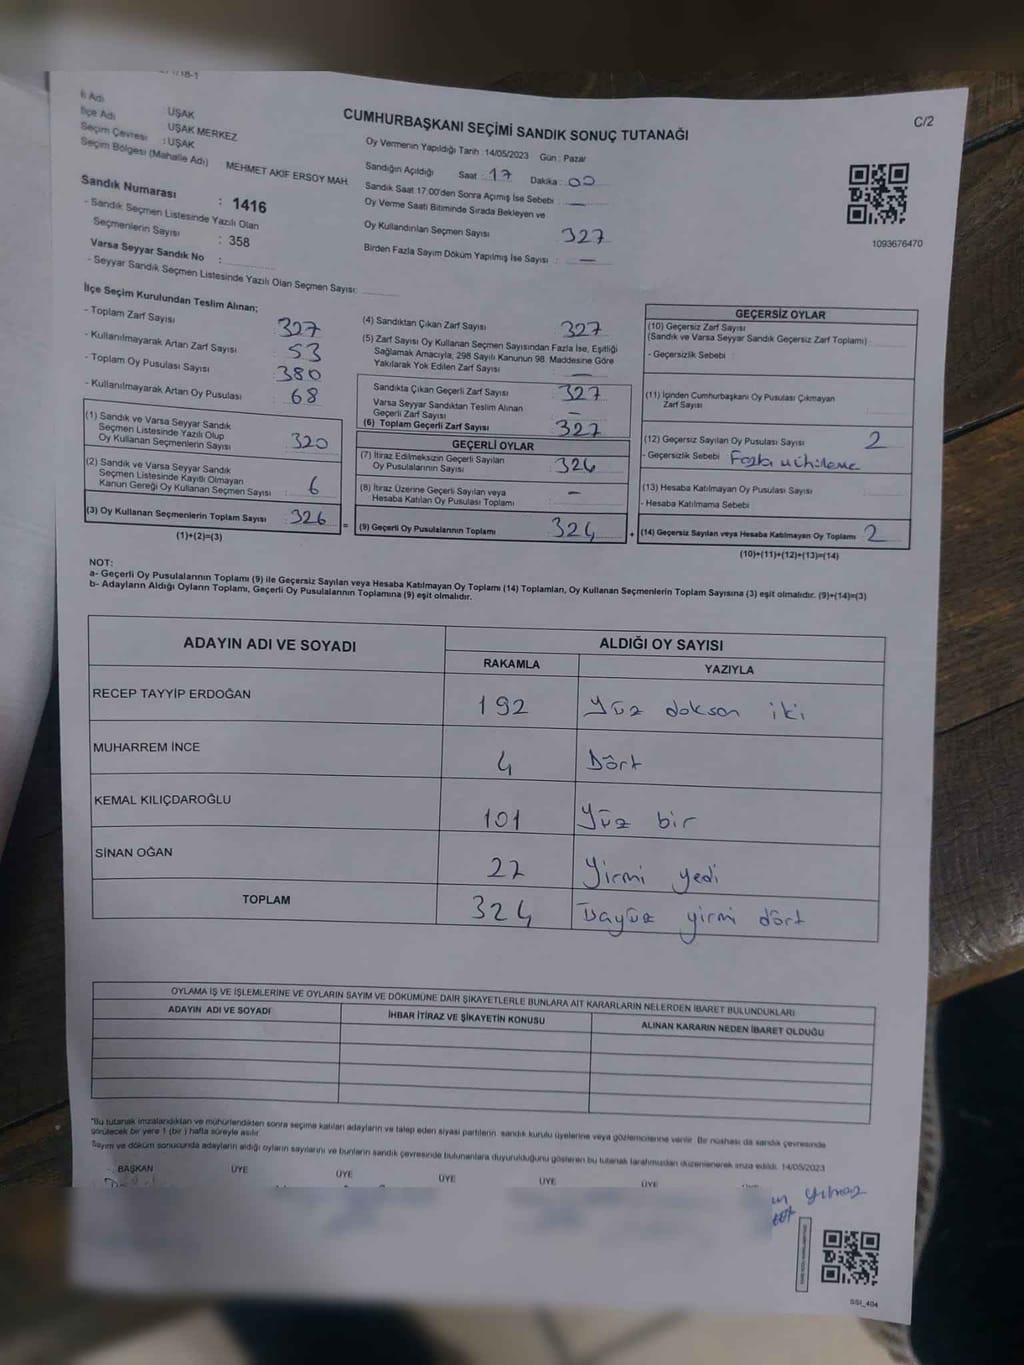 C/2
İl Adı UŞAK
İlçe Adı : UŞAK MERKEZ
Seçim Çevresi : UŞAK
Seçim Bölgesi (Mahalle Adı) MEHMET AKİF ERSOY MAH.
Sandık Numarası : 1416
- Sandık Seçmen Listesinde Yazılı Olan
Seçmenlerin Sayısı : 358
Varsa Seyyar Sandık No :
- Seyyar Sandık Seçmen Listesinde Yazılı Olan Seçmen Sayısı:
CUMHURBAŞKANI SEÇİMİ SANDIK SONUÇ TUTANAĞI
Oy Vermenin Yapıldığı Tarih : 14/05/2023 Gün : Pazar
Sandığın Açıldığı Saat : 17 Dakika : 00
Sandık Saat 17.00'den Sonra Açımış İse Sebebi : —
Oy Verme Saati Bitiminde Sırada Bekleyen ve
Oy Kullandırılan Seçmen Sayısı 327
Birden Fazla Sayım Döküm Yapılmış İse Sayısı : —
1093676470
İlçe Seçim Kurulundan Teslim Alınan;
- Toplam Zarf Sayısı 327
- Kullanılmayarak Artan Zarf Sayısı 53
- Toplam Oy Pusulası Sayısı 380
- Kullanılmayarak Artan Oy Pusulası 68
(1) Sandık ve Varsa Seyyar Sandık
Seçmen Listesinde Yazılı Olup
Oy Kullanan Seçmenlerin Sayısı 320
(2) Sandık ve Varsa Seyyar Sandık
Seçmen Listesinde Kayıtlı Olmayan
Kanun Gereği Oy Kullanan Seçmen Sayısı 6
(3) Oy Kullanan Seçmenlerin Toplam Sayısı 326
(1)+(2)=(3)
(4) Sandıktan Çıkan Zarf Sayısı 327
(5) Zarf Sayısı Oy Kullanan Seçmen Sayısından Fazla İse, Eşitliği
Sağlamak Amacıyla, 298 Sayılı Kanunun 98. Maddesine Göre
Yakılarak Yok Edilen Zarf Sayısı —
Sandıkta Çıkan Geçerli Zarf Sayısı 327
Varsa Seyyar Sandıktan Teslim Alınan
Geçerli Zarf Sayısı —
(6) Toplam Geçerli Zarf Sayısı 327
GEÇERLİ OYLAR
(7) İtiraz Edilmeksizin Geçerli Sayılan
Oy Pusulalarının Sayısı 324
(8) İtiraz Üzerine Geçerli Sayılan veya
Hesaba Katılan Oy Pusulası Toplamı —
= (9) Geçerli Oy Pusulalarının Toplamı 324 +
GEÇERSİZ OYLAR
(10) Geçersiz Zarf Sayısı
(Sandık ve Varsa Seyyar Sandık Geçersiz Zarf Toplamı)
- Geçersizlik Sebebi :
(11) İçinden Cumhurbaşkanı Oy Pusulası Çıkmayan
Zarf Sayısı
(12) Geçersiz Sayılan Oy Pusulası Sayısı 2
- Geçersizlik Sebebi Fazla mühürleme
(13) Hesaba Katılmayan Oy Pusulası Sayısı
- Hesaba Katılmama Sebebi
(14) Geçersiz Sayılan veya Hesaba Katılmayan Oy Toplamı 2
(10)+(11)+(12)+(13)=(14)
NOT:
a- Geçerli Oy Pusulalarının Toplamı (9) ile Geçersiz Sayılan veya Hesaba Katılmayan Oy Toplamı (14) Toplamları, Oy Kullanan Seçmenlerin Toplam Sayısına (3) eşit olmalıdır. (9)+(14)=(3)
b- Adayların Aldığı Oyların Toplamı, Geçerli Oy Pusulalarının Toplamına (9) eşit olmalıdır.
ADAYIN ADI VE SOYADI ALDIĞI OY SAYISI
RAKAMLA YAZIYLA
RECEP TAYYİP ERDOĞAN 192 Yüz doksan iki
MUHARREM İNCE 4 Dört
KEMAL KILIÇDAROĞLU 101 Yüz bir
SİNAN OĞAN 27 Yirmi yedi
TOPLAM 324 Üçyüz yirmi dört
OYLAMA İŞ VE İŞLEMLERİNE VE OYLARIN SAYIM VE DÖKÜMÜNE DAİR ŞİKAYETLERLE BUNLARA AİT KARARLARIN NELERDEN İBARET BULUNDUKLARI
ADAYIN ADI VE SOYADI İHBAR İTİRAZ VE ŞİKAYETİN KONUSU ALINAN KARARIN NEDEN İBARET OLDUĞU
*Bu tutanak imzalandıktan ve mühürlendikten sonra seçime katılan adayların ve talep eden siyasi partilerin sandık kurulu üyelerine veya gözlemcilerine verilir. Bir nüshası da sandık çevresinde
görülecek bir yere 1 (bir) hafta süreyle asılır.
Sayım ve döküm sonucunda adayların aldığı oyların sayılarını ve bunların sandık çevresinde bulunanlara duyurulduğunu gösteren bu tutanak tarafımızdan düzenlenerek imza edildi. 14/05/2023
BAŞKAN ÜYE ÜYE ÜYE ÜYE ÜYE
Yılmaz
SSI_404